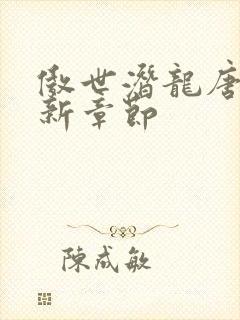 傲世潛龍唐
新章節
陳成敏